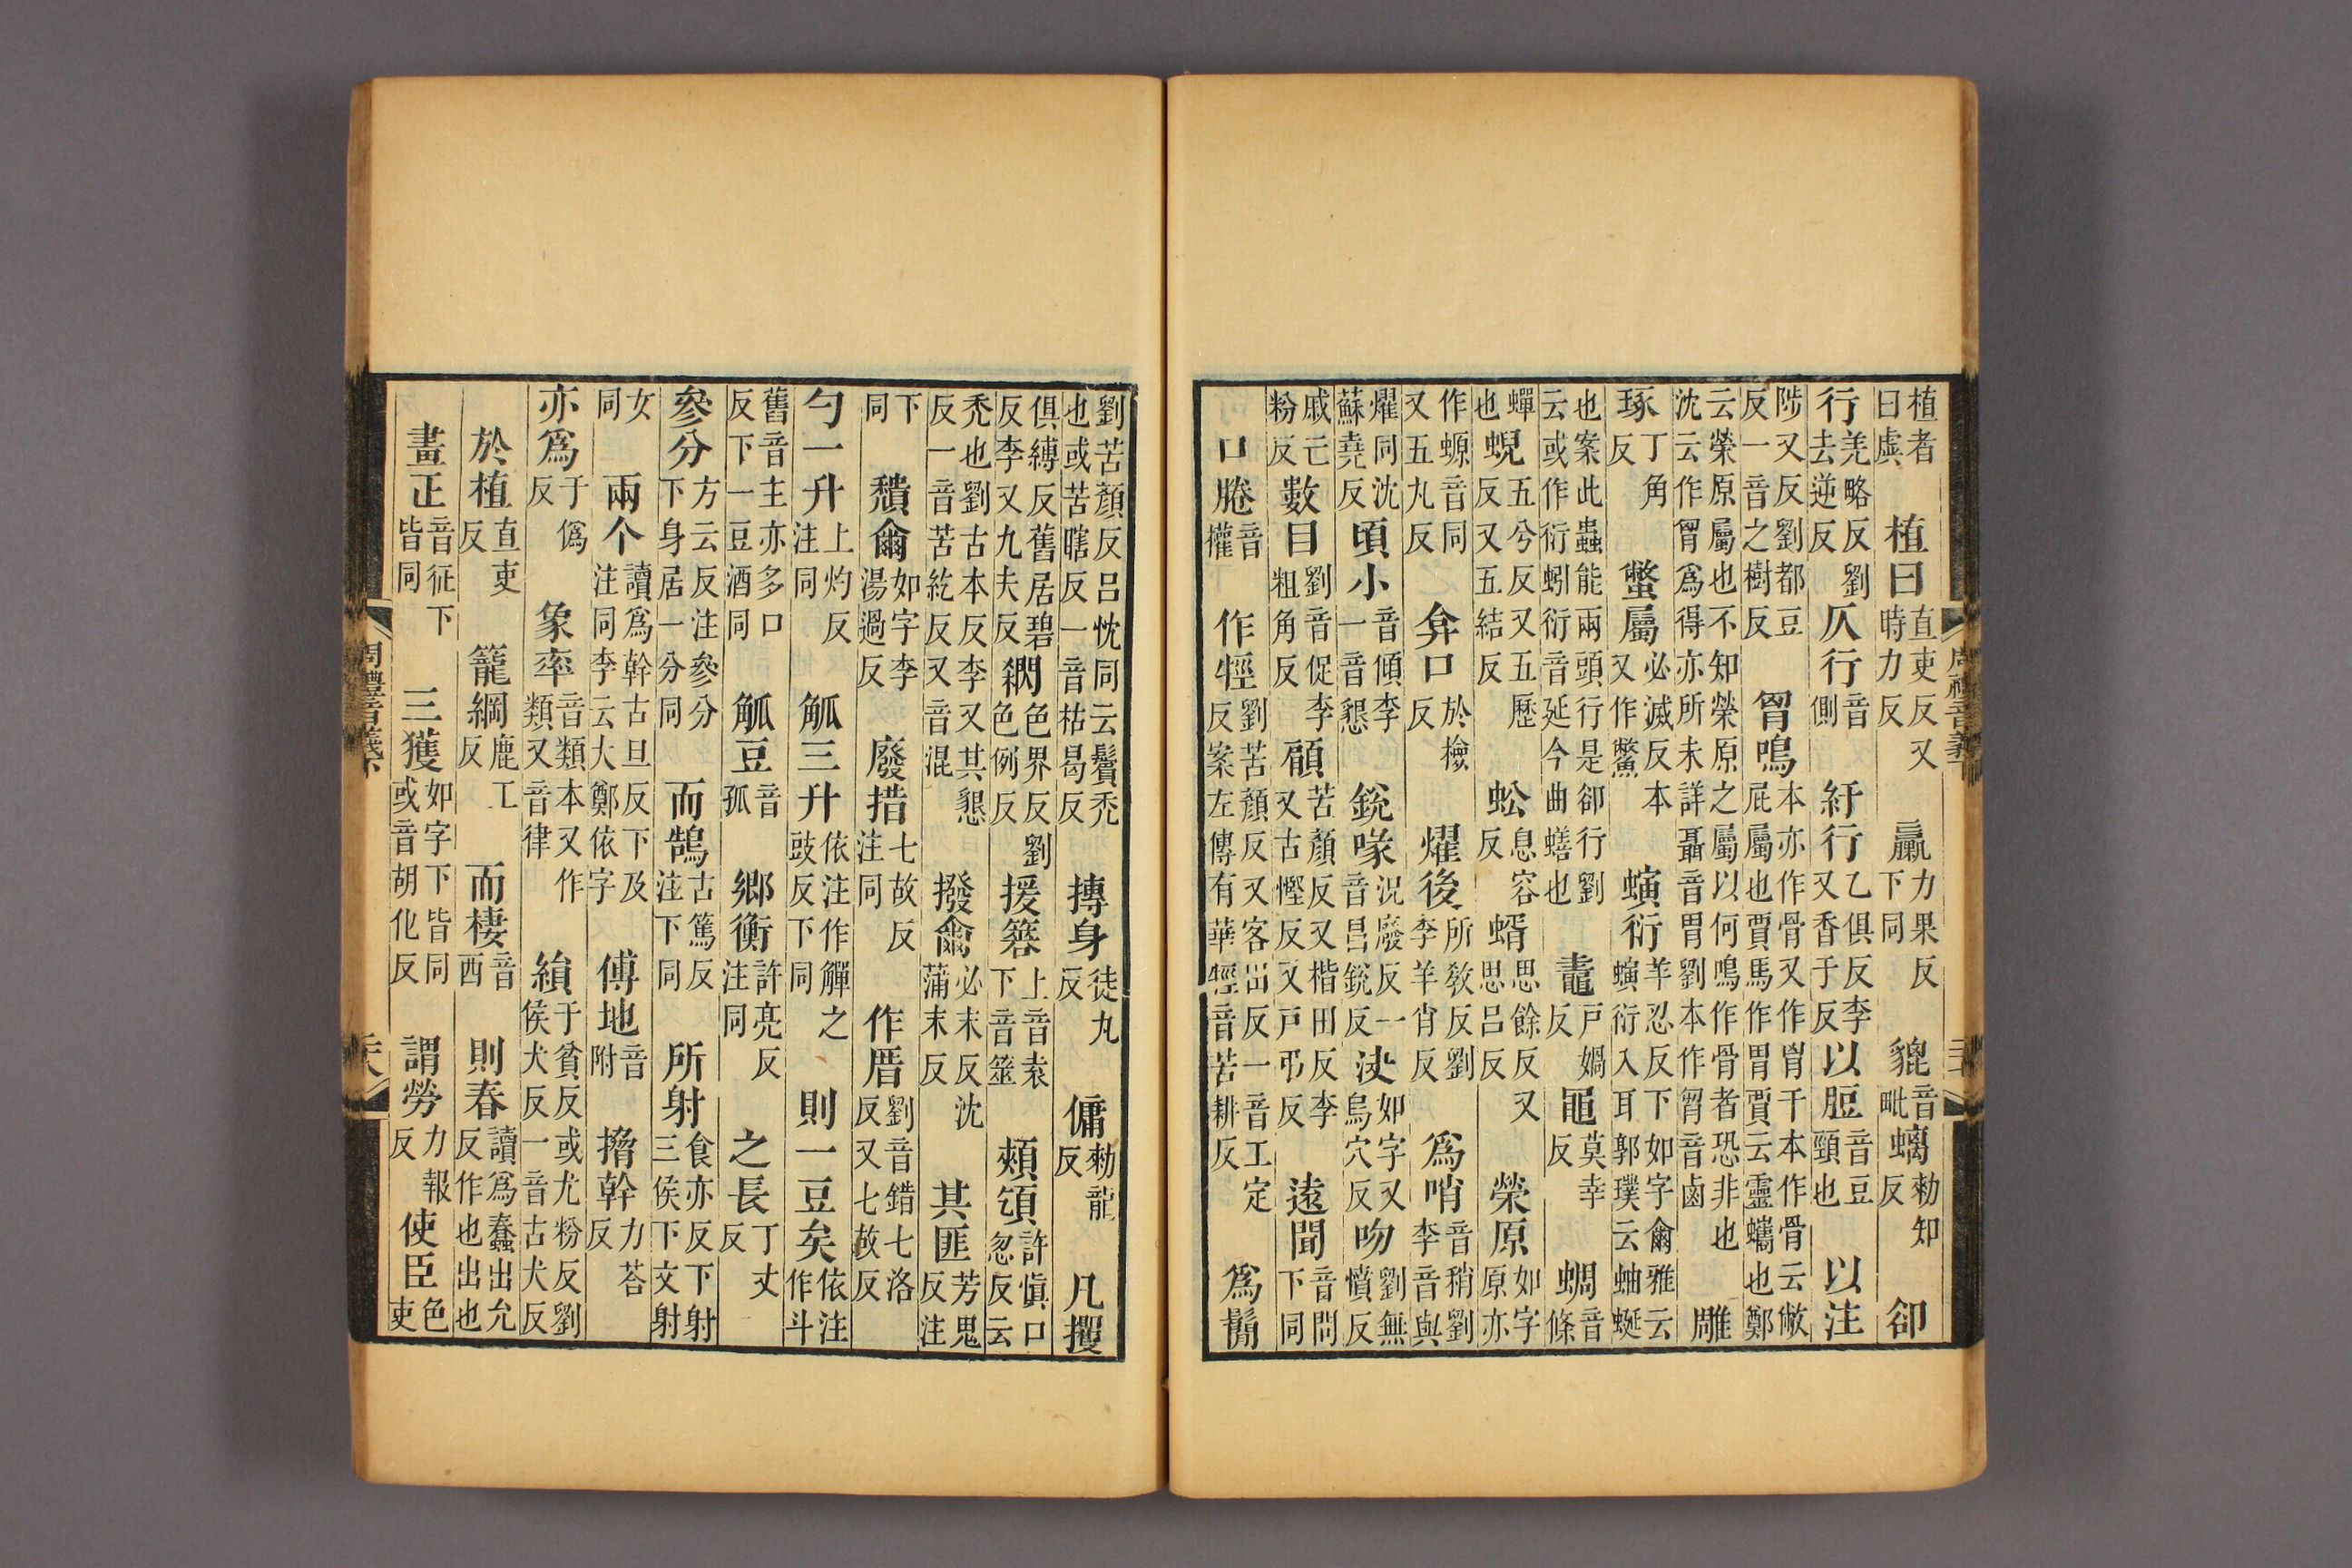 植者曰虡 植曰 直吏反又時力反 臝 力果反下同 貔 音毗 螭 勑知反 卻
行 羌略反劉去逆反 仄行 音側 紆行 乙俱反李又香于反 以脰 音豆頸也 以注
陟又反劉都豆反一音之樹反 胷鳴 本亦作骨又作胷干本作骨云敝屁屬也賈馬作胃賈云靈蠵也鄭
云榮原屬也不知榮原之屬以何鳴作骨者恐非也沈云作胷爲得亦所未詳聶音胃劉本作胷音鹵 雕
琢 丁角反 鱉屬 必滅反本又作鱉 螾衍 羊忍反下如字爾雅云螾衍入耳郭璞云蚰蜒
也案此蟲能兩頭行是卻行劉云或作衍蚓衍音延今曲蟮也 鼃 戶媧反 黽 莫幸反 蜩 音條
蟬也 蜺 五兮反又五歷反又五結反 蚣 息容反 蝑 思餘反又思呂反 榮原 如字原亦
作螈音同又五丸反 弇口 於檢反 燿後 所教反劉李羊肖反 爲哨 音稍劉李音與
燿同沈蘇堯反 頃小 音傾李一音懇 銳喙 況廢反一音昌銳反 決 如字又烏穴反 吻 劉無憤反
戚亡粉反 數目 劉音促李粗角反 顧 苦顏反又楷田反李又古慳反又戶弔反 遠聞 音問下同
口腃 音權 作牼 劉苦顏反又客田反一音工定反案左傳有華牼音苦耕反 爲鬜
劉苦顏反呂忱同云鬢禿也或苦瞎反一音枯曷反 摶身 徒丸反 傭 勑龍反 凡攫
俱縛反舊居碧反李又九夫反 閷 色界反劉色例反 援簭 上音袁下音筮 頰頌 許愼口忽反云
禿也劉古本反李又其懇反一音苦紇反又音混 撥爾 必末反沈蒲末反 其匪 芳鬼反注
下同 穨爾 如字李湯過反 廢措 七故反注同 作厝 劉音錯七洛反又七故反
勺一升 上灼反注同 觚三升 依注作觶之豉反下同 則一豆矣 依注作斗
舊音主亦多口反下一豆酒同 觚豆 音孤 鄉衡 許亮反注同 之長 丁丈反
參分 方云反注參分下身居一分同 而鵠 古篤反注下同 所射 食亦反下射三侯下文射
女同 兩个 讀爲幹古旦反下及注同李云大鄭依字 傅地 音附 搚幹 力荅反
亦爲 于僞反 象率 音類本又作類又音律 縜 于貧反或尤粉反劉侯犬反一音古犬反
於植 直吏反 籠綱 鹿工反 而棲 音西 則春 讀爲蠢出允反作也出也
畫正 音征下皆同 三獲 如字下皆同或音胡化反 謂勞 力報反 使臣 色吏
周禮音義下